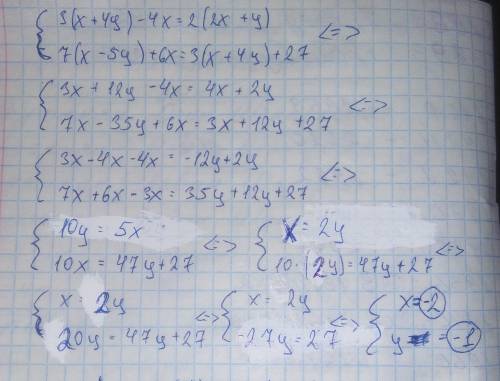 3(x+4y)-4x=2(2x+y) <=>
7(x-5y)+6x=3(x+4y)+27
3x+12y-4x=4x+2y <=>
7x-35y+6x=3x+12y+27
3x-4x-4x=-12y+2y <=>
7x+6x-3x=35y+12y+27
10y=5x <=> x=2y <=>
10x=47y+27 10·(2y)=47y+27
x=2y <=> x=2y <=> x=-2
20y=47y+27 -27y=27 y=-1